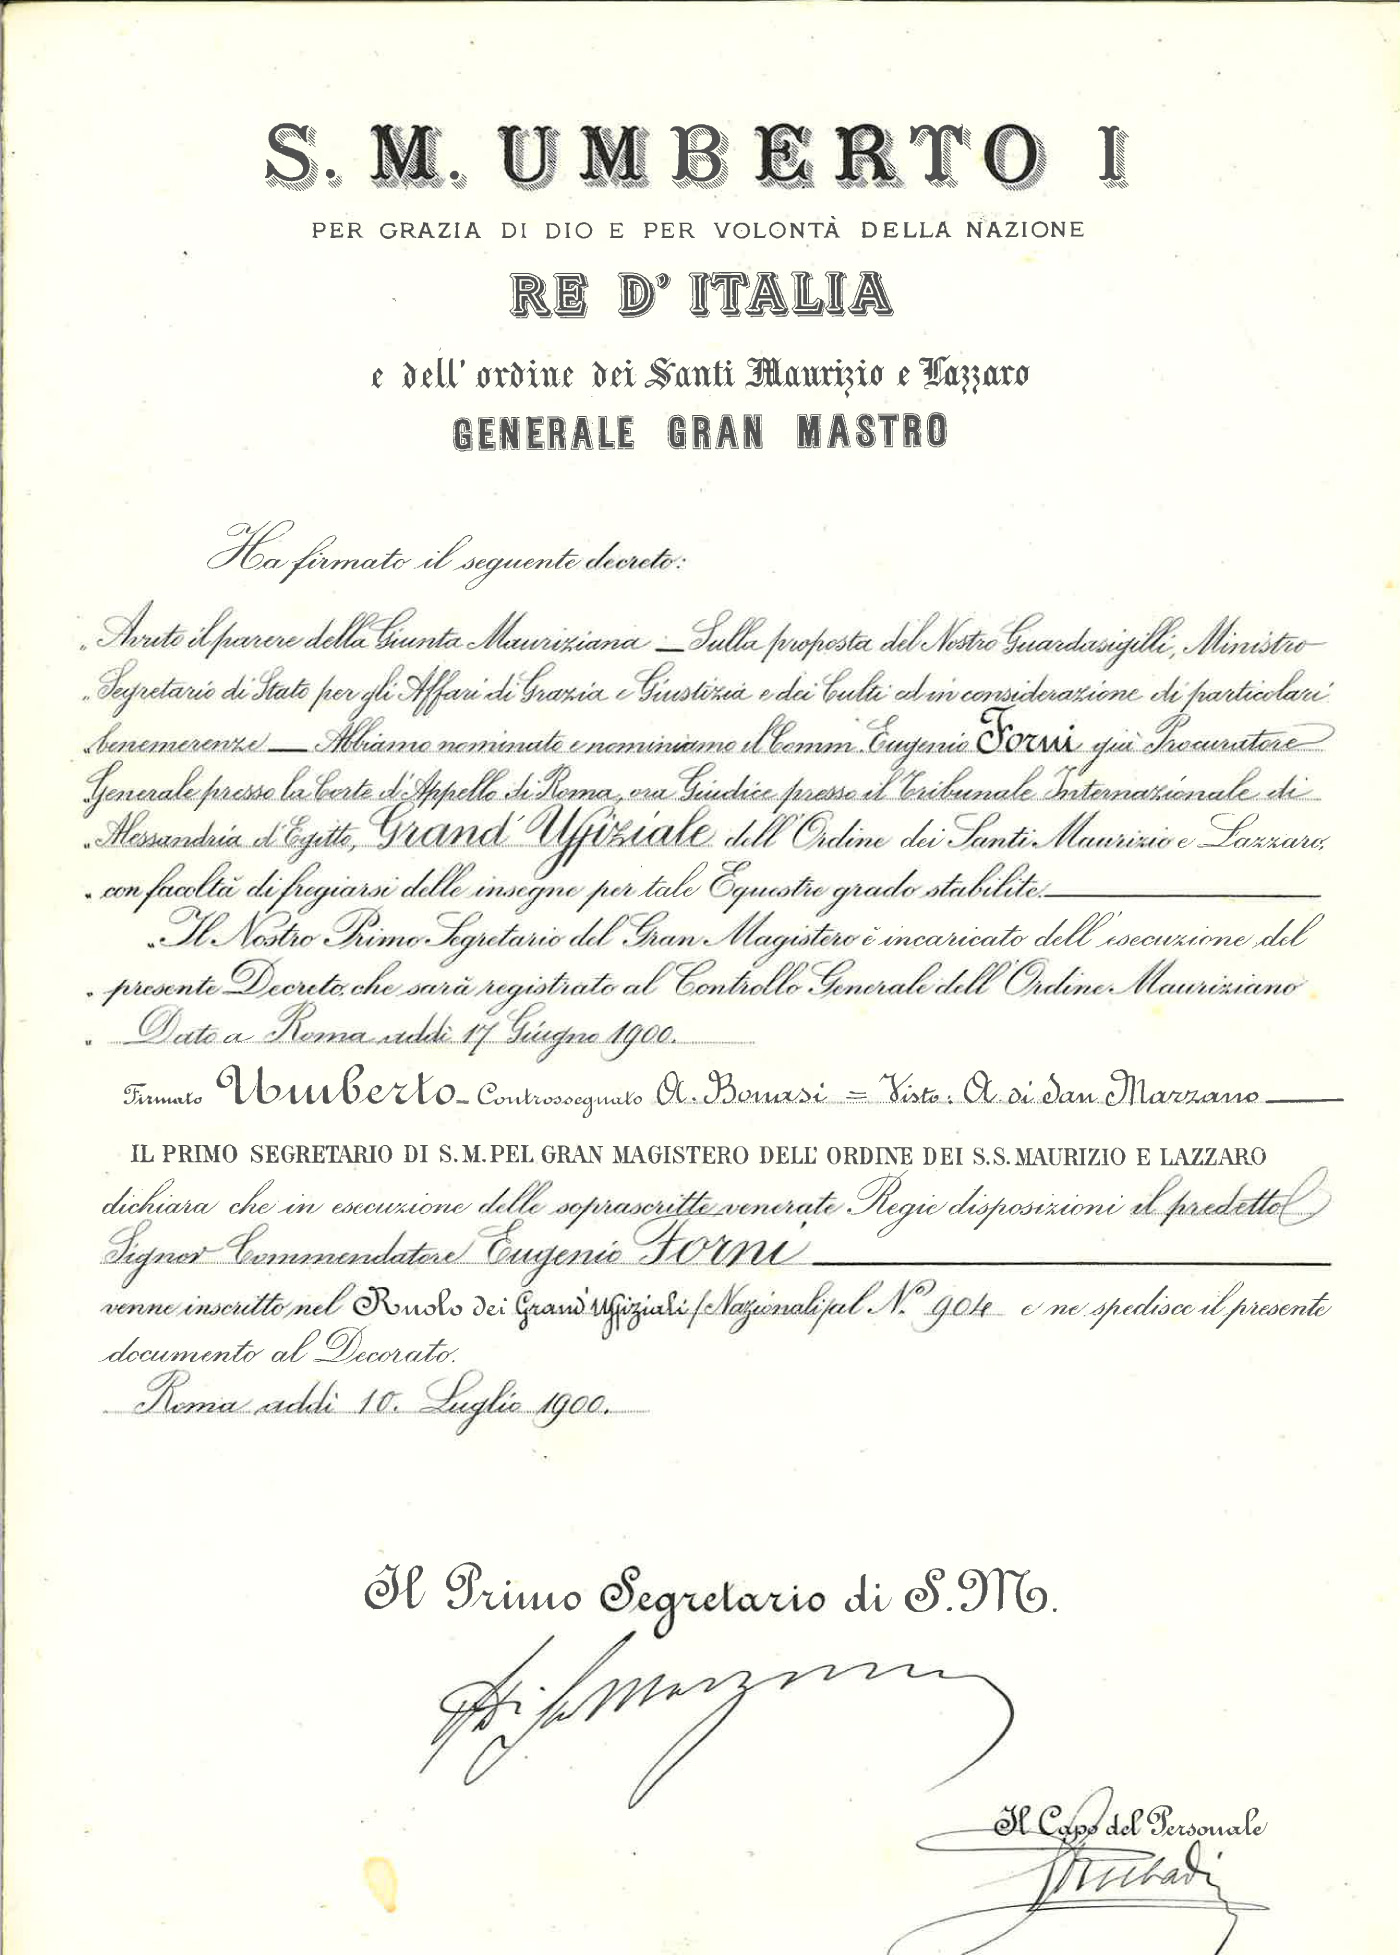 S. M. UMBERTO I
PER GRAZIA DI DIO E PER VOLONTÀ DELLA NAZIONE
RE D' ITALIA
e dell' ordine dei Santi Maurizio e Lazzaro
GENERALE GRAN MASTRO
Ha firmato il seguente decreto:
„ Avuto il parere della Giunta Mauriziana — Sulla proposta del Nostro Guardasigilli, Ministro
„ Segretario di Stato per gli Affari di Grazia e Giustizia e dei Culti ed in considerazione di particolari
„ benemerenze — Abbiamo nominato e nominiamo il Comm. Eugenio Forni già Procuratore
„ Generale presso la Corte d'Appello di Roma, ora Giudice presso il Tribunale Internazionale di
„ Alessandria d'Egitto, Grand' Uffiziale dell' Ordine dei Santi Maurizio e Lazzaro,
„ con facoltà di fregiarsi delle insegne per tale Equestre grado stabilite.
„ Il Nostro Primo Segretario del Gran Magistero è incaricato dell' esecuzione del
„ presente Decreto che sarà registrato al Controllo Generale dell' Ordine Mauriziano
„ Dato a Roma addì 17 Giugno 1900.
Firmato Umberto – Controssegnato A. Bonasi = Visto: A. di San Marzano
IL PRIMO SEGRETARIO DI S.M. PEL GRAN MAGISTERO DELL' ORDINE DEI S.S. MAURIZIO E LAZZARO
dichiara che in esecuzione delle soprascritte venerate Regie disposizioni il predetto
Signor Commendatore Eugenio Forni
venne inscritto nel Ruolo dei Grand' Uffiziali (Nazionali) al N.º 904 e ne spedisce il presente
documento al Decorato.
Roma addì 10. Luglio 1900.
Il Primo Segretario di S. M.
A di San Marzano
Il Capo del Personale